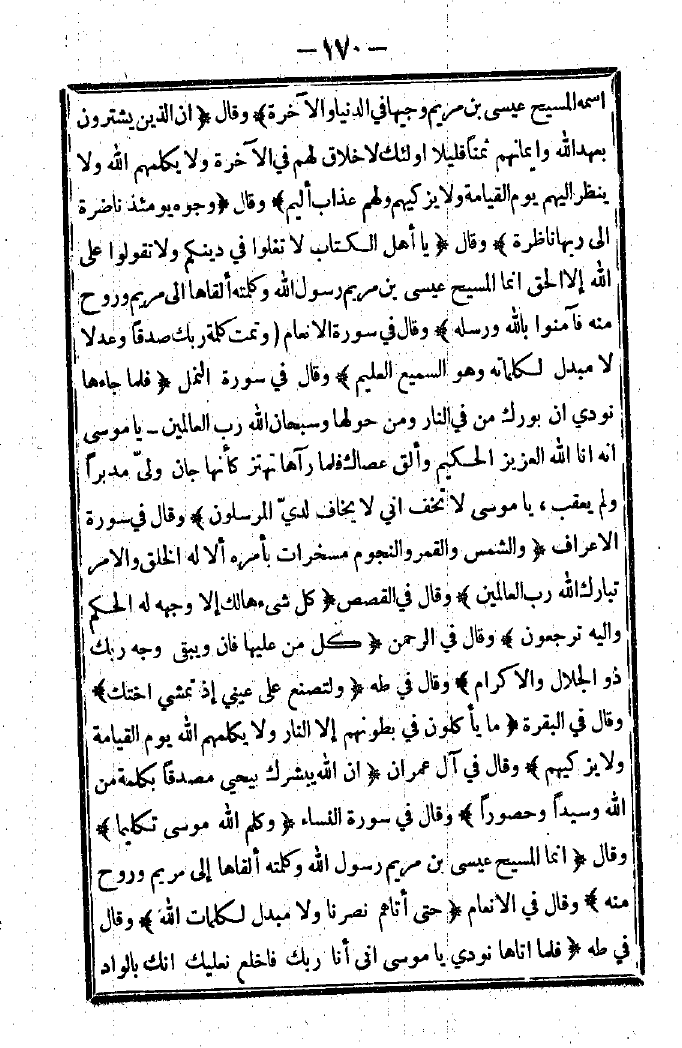 — ١٧٠ —
اسمه المسيح عيسى بن مريم وجيها في الدنيا والآخرة﴾ وقال ﴿ ان الذين يشترون
بعهد الله وايمانهم ثمناً قليلا اولئك لا خلاق لهم في الآخرة ولا يكلمهم الله ولا
ينظر اليهم يوم القيامة ولا يزكيهم ولهم عذاب أليم﴾ وقال ﴿وجوه يومئذ ناضرة
الى ربها ناظرة ﴾ وقال ﴿ يا أهل الكتاب لا تغلوا في دينكم ولا تقولوا على
الله إلا الحق انما المسيح عيسى بن مريم رسول الله وكلمته ألقاها الى مريم وروح
منه فآمنوا بالله ورسله ﴾ وقال في سورة الانعام ( وتمت كلمة ربك صدقاً وعدلا
لا مبدل لكلماته وهو السميع العليم ﴾ وقال في سورة النمل ﴿ فلما جاءها
نودي ان بورك من في النار ومن حولها وسبحان الله رب العالمين ـ يا موسى
انه انا الله العزيز الحكيم وألق عصاك فلما رآها تهتز كأنها جان ولىّ مدبراً
ولم يعقب ، يا موسى لا تخف اني لا يخاف لديّ المرسلون ﴾ وقال في سورة
الاعراف ﴿ والشمس والقمر والنجوم مسخرات بأمره ألا له الخلق والامر
تبارك الله رب العالمين ﴾ وقال في القصص ﴿ كل شىء هالك إلا وجهه له الحكم
واليه ترجعون ﴾ وقال في الرحمن ﴿ كل من عليها فان ويبقى وجه ربك
ذو الجلال والاكرام ﴾ وقال في طه ﴿ ولتصنع على عيني إذ تمشي اختك﴾
وقال في البقرة ﴿ ما يأكلون في بطونهم إلا النار ولا يكلمهم الله يوم القيامة
ولا يزكيهم ﴾ وقال في آل عمران ﴿ ان الله يبشرك بيحيى مصدقاً بكلمة من
الله وسيداً وحصوراً ﴾ وقال في سورة النساء ﴿ وكلم الله موسى تكليما ﴾
وقال ﴿ انما المسيح عيسى بن مريم رسول الله وكلمته ألقاها إلى مريم وروح
منه ﴾ وقال في الانعام ﴿ حتى أتاهم نصرنا ولا مبدل لكلمات الله ﴾ وقال
في طه ﴿ فلما اتاها نودي يا موسى انى أنا ربك فاخلع نعليك انك بالواد